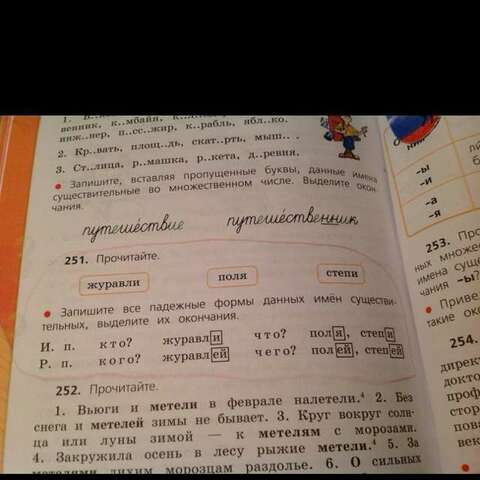 венник, к..мбайн,
инж..нер, п..сс..жир, к..рабль, ябл..ко.
2. Кр..вать, площ..дь, скат..рть, мыш.. .
3. Ст..лица, р..машка, р..кета, д..ревня.
● Запишите, вставляя пропущенные буквы, данные имена
существительные во множественном числе. Выделите окон-
чания.
путешéствие путешéственник
251. Прочитайте.
журавли поля степи
● Запишите все падежные формы данных имён существи-
тельных, выделите их окончания.
И. п. кто? журавли что? поля, степи
Р. п. кого? журавлей чего? полей, степей
252. Прочитайте.
1. Вьюги и метели в феврале налетели.⁴ 2. Без
снега и метелей зимы не бывает. 3. Круг вокруг солн-
ца или луны зимой — к метелям с морозами.
4. Закружила осень в лесу рыжие метели.⁴ 5. За
метелями лихим морозцам раздолье. 6. О сильных
-ы
-и
-а
-я
253.
ных множес
имена сущ
чания -ы?
● Приве
такие око
254.
директ
докто
проф
стор
пова
век